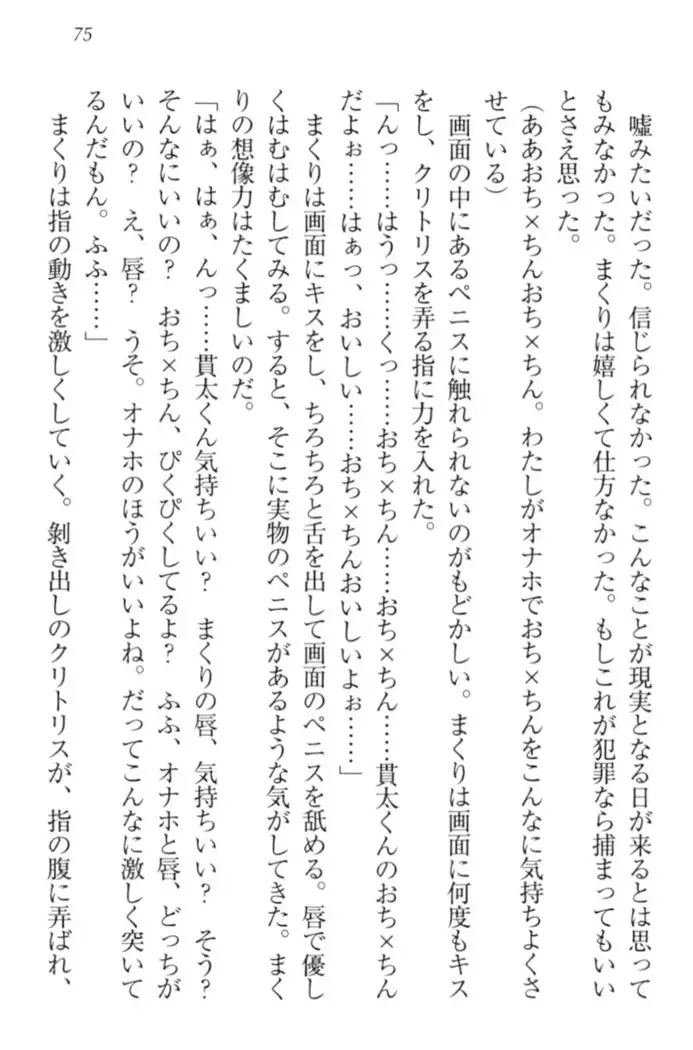 75
嘘みたいだった。信じられなかった。こんなことが現実となる日が来るとは思って
もみなかった。まくりは嬉しくて仕方なかった。もしこれが犯罪なら捕まってもいい
とさえ思った。
(ああおち×ちんおち×ちん。わたしがオナホでおち×ちんをこんなに気持ちよくさ
せている)
画面の中にあるペニスに触れられないのがもどかしい。まくりは画面に何度もキス
をし、クリトリスを弄る指に力を入れた。
「んっ……はうっ……くっ……おち×ちん……おち×ちん……貫太くんのおち×ちん
だよぉ……はぁっ、おいしい……おち×ちんおいしいよぉ……」
まくりは画面にキスをし、ちろちろと舌を出して画面のペニスを舐める。唇で優し
くはむはむしてみる。すると、そこに実物のペニスがあるような気がしてきた。まく
りの想像力はたくましいのだ。
「はぁ、はぁ、んっ……貫太くん気持ちいい？　まくりの唇、気持ちいい？　そう？
そんなにいいの？　おち×ちん、ぴくぴくしてるよ？　ふふ、オナホと唇、どっちが
いいの？　え、唇？　うそ。オナホのほうがいいよね。だってこんなに激しく突いて
るんだもん。ふふ……」
まくりは指の動きを激しくしていく。剥き出しのクリトリスが、指の腹に弄ばれ、